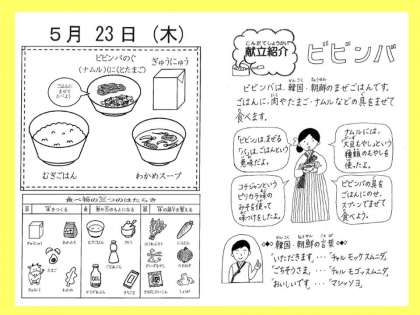 5月 23日 (木)
ビビンバのぐ
(ナムル)(にくとたまご)
ぎゅうにゅう
ごはんに
まぜて
たべよう!
むぎごはん
わかめスープ
食べ物の三つのはたらき
こんだてしょうかい
献立紹介
ビビンバ
ビビンバは、韓国・朝鮮のまぜごはんです。
ごはんに、肉やたまご・ナムルなどの具をまぜて
食べます。
「ビビン」は、まぜる
「バ」は、ごはんという
意味だよ。
ナムルには、
「大豆もやし」という
種類のもやしを
使ったよ。
コチジャンという
ピリカラ味の
みそを使って
味つけをしたよ。
ビビンバの具を
ごはんにのせ、
スプーンでまぜて
食べよう。
韓国・朝鮮の言葉
"いただきます。"…"チャル モッケスムニダ。"
"ごちそうさま。"…"チャル モゴッスムニダ。"
"おいしいです。"…"マシッソヨ。"